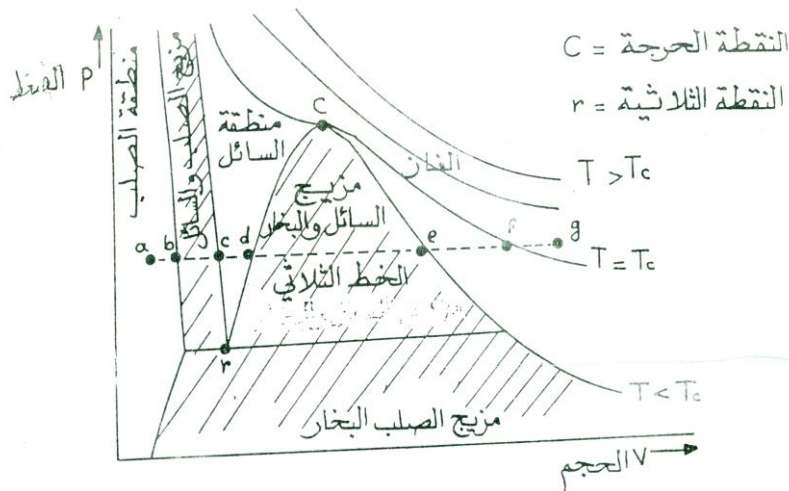 C = النقطة الحرجة
r = النقطة الثلاثية
الضغط P
منطقة الصلب
مزيج الصلب والسائل
منطقة
السائل
C
الغاز
T > Tc
مزيج
السائل والبخار
a b c d e f g
T = Tc
الخط الثلاثي
r
T < Tc
مزيج الصلب البخار
الحجم V